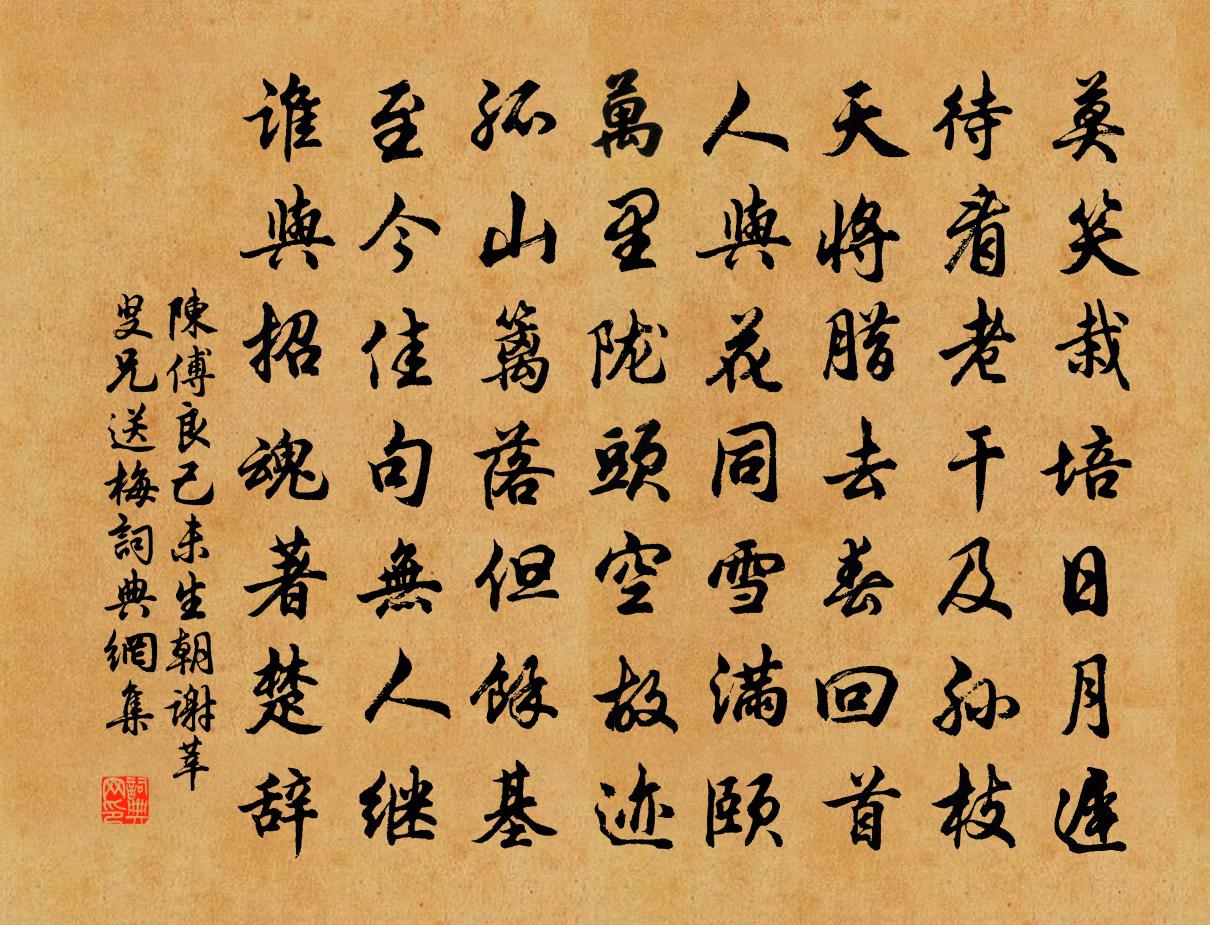 莫笑栽培日月遲
待看老干及孙枝
天将腊去春回首
人與花同雪满颐
萬里陇頭空故迹
孤山篱落但餘基
至今佳句無人继
谁與招魂著楚辞
陳傅良己未生朝谢莘
叟兄送梅詞典網集
詞典网印